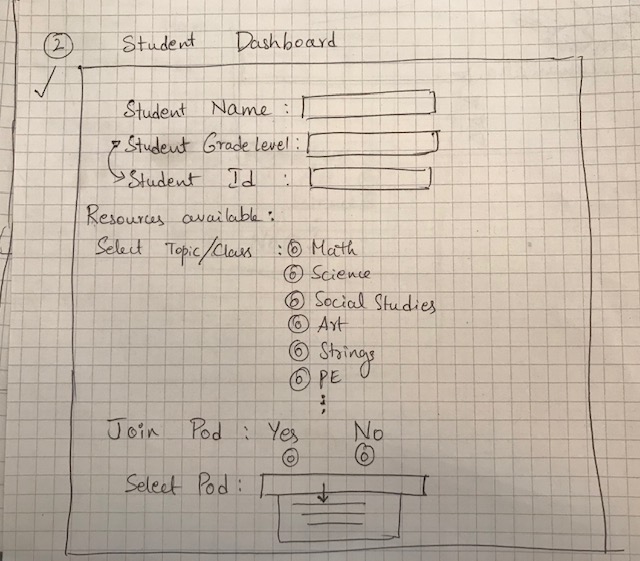 2 Student Dashboard
Student Name :
Student Grade level :
Student Id :
Resources available :
Select Topic/Class : Math
Science
Social Studies
Art
Strings
PE
Join Pod : Yes No
Select Pod :